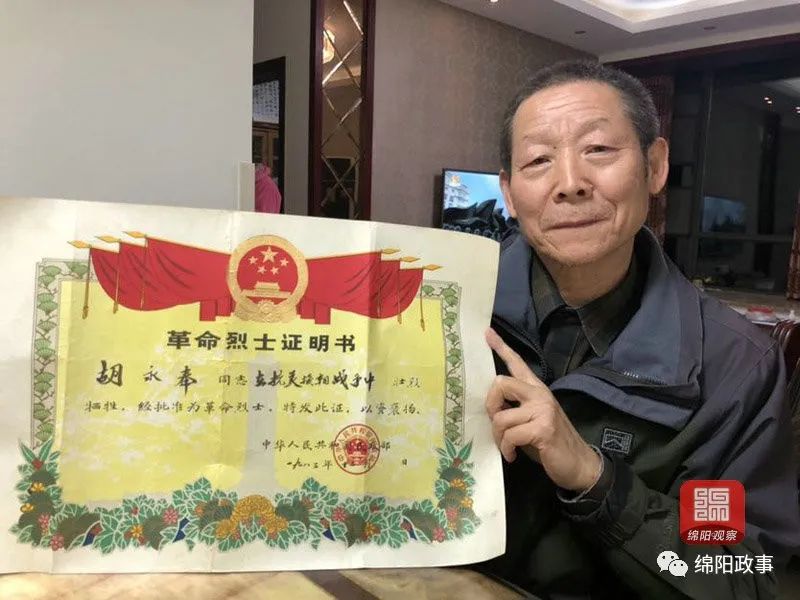 革命烈士证明书
胡永奉同志在抗美援朝战争中壮烈
牺牲,经批准为革命烈士,特发此证,以资褒扬。
中华人民共和 部
一九八三年 日
绵阳观察
绵阳政事